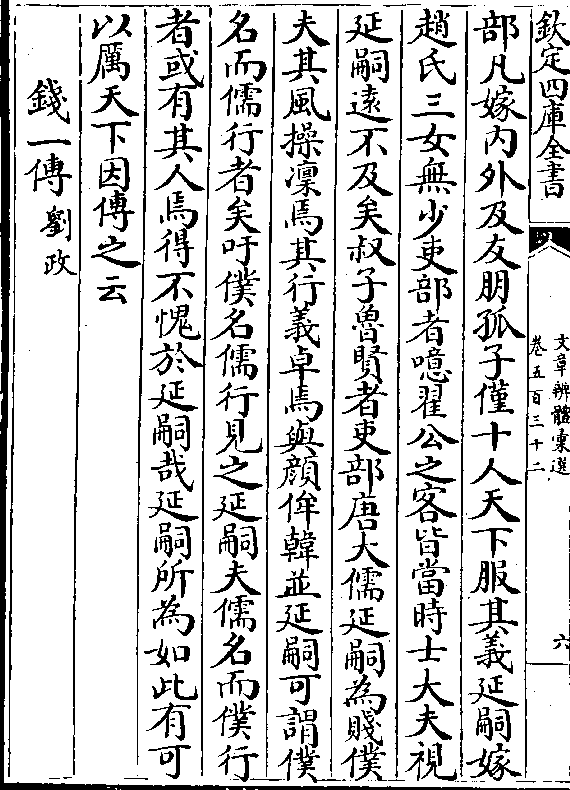 欽定四庫全書
文章辨體彙選
卷五百三十二
六
部凡嫁内外及友朋孤子僅十人天下服其義延嗣嫁
趙氏三女無少吏部者噫翟公之客皆當時士大夫視
延嗣逺不及矣叔子魯賢者吏部唐大儒延嗣為賤僕
夫其風操凜焉其行義卓焉與顔侔韓並延嗣可謂僕
名而儒行者矣吁僕名儒行見之延嗣夫儒名而僕行
者或有其人焉得不愧於延嗣哉延嗣所為如此有可
以厲天下因傳之云
錢一傳 劉政